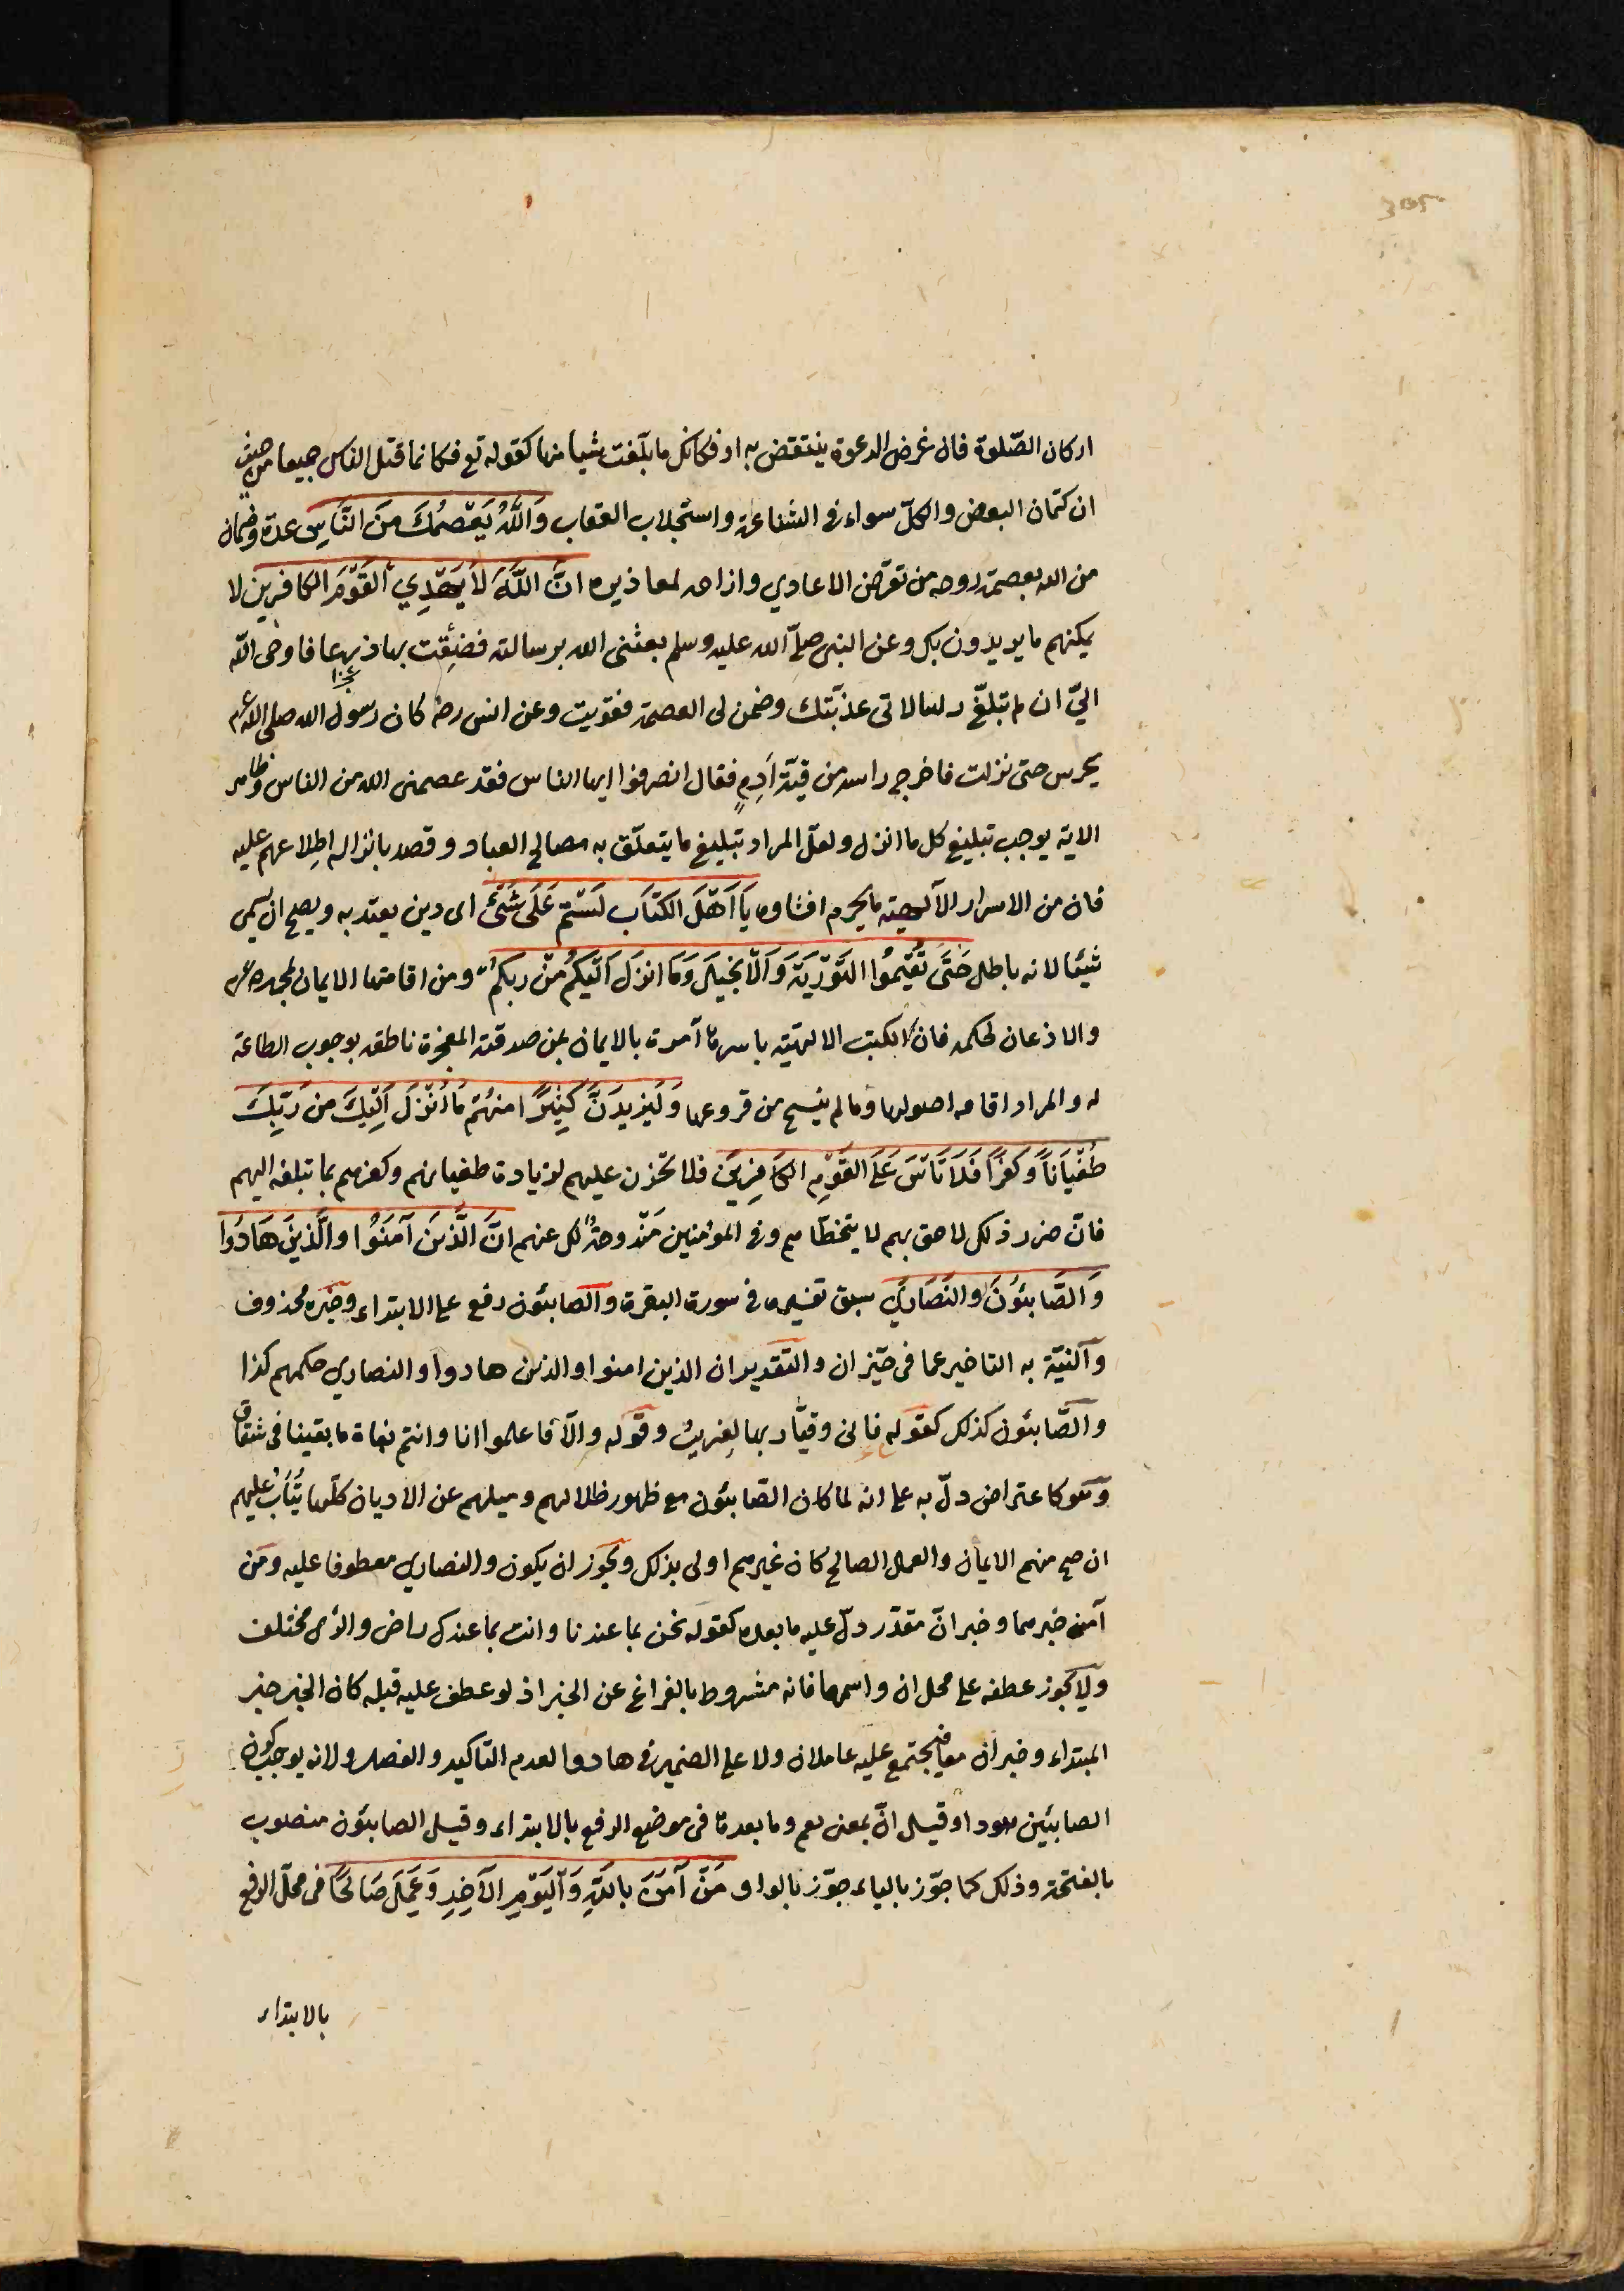 اركان الصّلوة فان غرض الدعوة ينتقض به او فكانك ما بلّغت شيا منها كقوله تع فكانما قتل الناس جميعا من حيث
ان كتمان البعض والكلّ سواء في الشناعة واستجلاب العقاب وَاللَّهُ يَعْصِمُكَ مِنَ النَّاسِ عدة وضمان
من الله بعصمة روحه من تعرّض الاعادي وازاحة لمعاذيره انَّ اللَّهَ لَا يَهْدِي الْقَوْمَ الكافرين لا
يمكنهم ما يريدون بك وعن النبي صلّى الله عليه وسلم بعثني الله برسالته فضِئقت بها ذرعا فاوحى اللّه
اليّ ان لم تبلّغ رسالاتي عذّبتك وضمن لي العصمة فقويت وعن انس رضه كان رسول الله صلى الله عم
يحرس حتى نزلت فاخرج راسه من قبّة اَدِمٍ فقال انصرفوا ايها الناس فقد عصمني الله من الناس وظاهر
الاية يوجب تبليغ كل ما انزل ولعلّ المراد تبليغ ما يتعلّق به مصالح العباد وقصد بانزاله اطلاعهم عليه
فان من الاسرار الآلهيته ما يحرم افشاوه يَا اَهْلَ الكتَاب لَسْتمْ عَلَى شَئْ اى دين يعتد به ويصح ان يسمى
شيئا لانه باطل حَتَّى تُقيْمُوا التَّوْرَيةَ وَالْاِنجْيلَ وَمَا انزَلَ اِلَيْكُم مّنْ ربكم ومن اقامتها الايمان لمحمد عم
والاذعان لحكمه فان الكتب الالهيّة باسرها آمرة بالايمان لمن صدقته المعجزة ناطقه بوجوب الطاعة
له والمراد اقامه اصولها وما لم ينسخ من فروعها وَلَيَزيدَنَّ كَثِيْرًا منهُمْ مَا اُنْزَلَ اِلَيْكَ مِنْ رَبِّكَ
طُغْيَاناً وَكفرًا فَلَا تَاْسَ عَلَى القَوْمِ الكَافِرِينَ فلا تخزن عليهم لزيادة طغيانهم وكفرهم بما تبلغه اليهم
فانّ ضرر ذلك لاحق بهم لا يتخطّاهم وفي المؤمنين مَنْدوحةٌ لك عنهم انَّ الَّذينَ آمَنَوُا والَّذيْنَ هَادُوا
وَالصَّابئُونَ والنَّصَارَى سبق تفسيره في سورة البقرة والصابئون رفع على الابتداء وخبره محذوف
والنيّة به التاخير عما في حيّز ان والتقدير ان الذين امنوا والذين هادوا والنصارى حكمهم كذا
والصّابئون كذلك كقوله فاني وقيّار بها لغريبُ وقوله والّا فاعلموا انا وانتم بغاة ما بقينا في شقاق
وهو كاعتراض دلّ به على انه لما كان الصّابئون مع ظهور ظلالهم وميلهم عن الاديان كلّها يُتَابُ عليهم
ان صح منهم الايمان والعمل الصالح كان غيرهم اولى بذلك ويجوز ان يكون والنصارى معطوفا عليه ومَن
آمن خبرهما وخبر انّ مقدّر دلّ عليه ما بعده كقوله نحن بما عندنا وانت بما عندك راض والرأى مختلف
ولا يجوز عطفه على محل ان واسمها فانه مشروط بالفراغ عن الخبر اذ لو عطف عليه قبله كان الخبر خبر
المبتداء وخبر ان معا فيجتمع عليه عاملان ولا على الضمير في هادوا لعدم التاكيد والفصل ولانه يوجب كون
الصابئين هودا وقيل انّ بمعنى نعم وما بعدها في موضع الرفع بالابتداء وقيل الصابئون منصوب
بالفتحة وذلك كما جوّز بالياء جوّز بالواو مَنْ آمَنَ بِاللهِ وَالْيَوْمِ الآخِرِ وَعَمِلَ صَالحًا في محلّ الرفع
بالابتداء